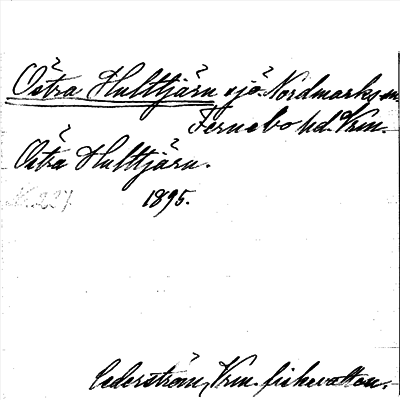 Östra Hulttjärn sjö. Nordmarks sn.
Fernebo hd. Vrm.
Östra Hulttjärn.
1895.
Cederström, Vrm. fiskevatten.